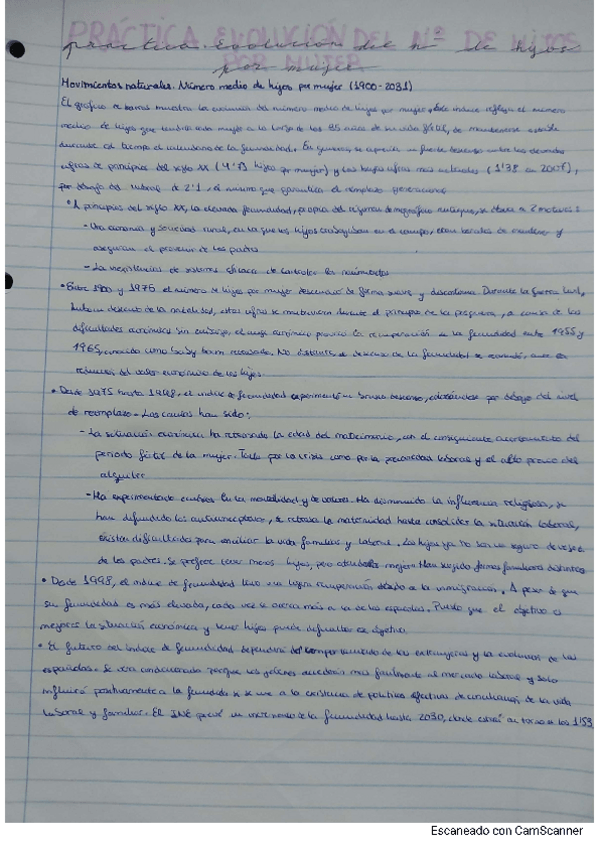 PRÁCTICA EVOLUCIÓN DEL Nº DE HIJOS POR MUJER
práctica. Evolución del nº de hijos
por mujer
Movimientos naturales. Número medio de hijos por mujer (1900-2031)
El gráfico de barras muestra la evolución del número medio de hijos por mujer. Este índice refleja el número
medio de hijos que tendría cada mujer a lo largo de los 35 años de su vida fértil, de mantenerse estable
durante el tiempo el calendario de la fecundidad. En general se aprecia un fuerte descenso entre las elevadas
cifras de principios del siglo XX (4'73 hijos por mujer) y las bajas cifras más actuales (1'38 en 2007),
por debajo del umbral de 2'1, el mismo que garantiza el remplazo generacional
• A principios del siglo XX, la elevada fecundidad, propia del régimen demográfico antiguo, se debía a 2 motivos:
- Una economía y sociedad rural, en la que los hijos trabajaban en el campo, eran baratos de mantener y
aseguran el porvenir de los padres
- La inexistencia de sistemas eficaces de controlar los nacimientos
• Entre 1900 y 1975 el número de hijos por mujer descendió de forma suave y discontinua. Durante la Guerra Civil,
hubo un descenso de la natalidad, estas cifras se mantuvieron durante el principio de la posguerra, a causa de las
dificultades económicas sin embargo, el auge económico provocó la recuperación de la fecundidad entre 1955 y
1965, conocido como baby boom retrasado. No obstante, el descenso de la fecundidad se reanudó, ante la
reducción del valor económico de los hijos.
• Desde 1975 hasta 1998, el índice de fecundidad experimentó un brusco descenso, colocándose por debajo del nivel
de reemplazo. Las causas han sido:
- La situación económica ha retrasado la edad del matrimonio, con el consiguiente acortamiento del
periodo fértil de la mujer. Tanto por la crisis como por la precariedad laboral y el alto precio del
alquiler
- Ha experimentado cambios en la mentalidad y de valores. Ha disminuido la influencia religiosa, se
han difundido los anticonceptivos, se retrasa la maternidad hasta consolidar la situación laboral,
existen dificultades para conciliar la vida familiar y laboral. Los hijos ya no son un seguro de vejez
de los padres. Se prefiere tener menos hijos, pero atenderlos mejor. Han surgido formas familiares distintas
• Desde 1998, el índice de fecundidad tuvo una ligera recuperación debido a la inmigración. A pesar de que
su fecundidad es más elevada, cada vez se acerca más a la de las españolas. Puesto que el objetivo es
mejorar la situación económica y tener hijos puede dificultar el objetivo
• El futuro del índice de fecundidad dependerá del comportamiento de las extranjeras y la evolución de las
españolas. Se verá condicionado porque los jóvenes accederán más fácilmente al mercado laboral y solo
influirá positivamente a la fecundidad si se une a la existencia de políticas efectivas de conciliación de la vida
laboral y familiar. El INE prevé un incremento de la fecundidad hasta 2030, donde estará en torno a los 1'53
Escaneado con CamScanner